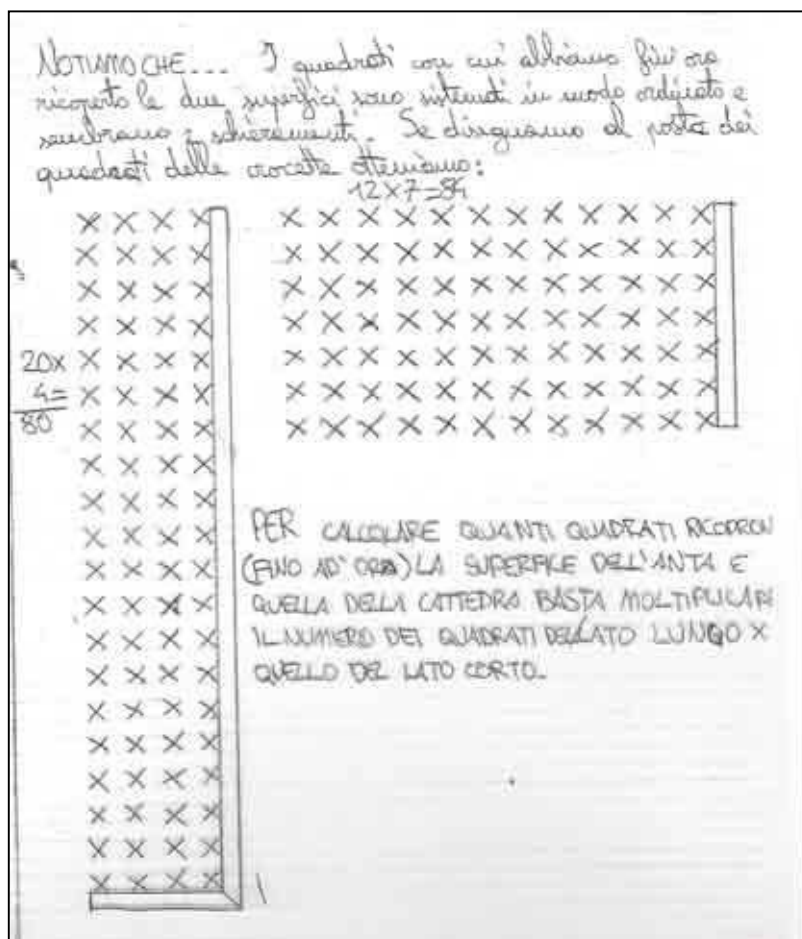 NOTIAMO CHE... I quadrati con cui abbiamo fin'ora
ricoperto le due superfici sono sistemati in modo ordinato e
sembrano schieramenti. Se disegnamo al posto dei
quadrati delle crocette otteniamo:
12X7=84
20X
4=
80
PER CALCOLARE QUANTI QUADRATI RICOPRON
(FINO AD'ORA) LA SUPERFICE DELL'ANTA E
QUELLA DELLA CATTEDRA BASTA MOLTIPLICARE
IL NUMERO DEI QUADRATI DEL LATO LUNGO X
QUELLO DEL LATO CORTO.